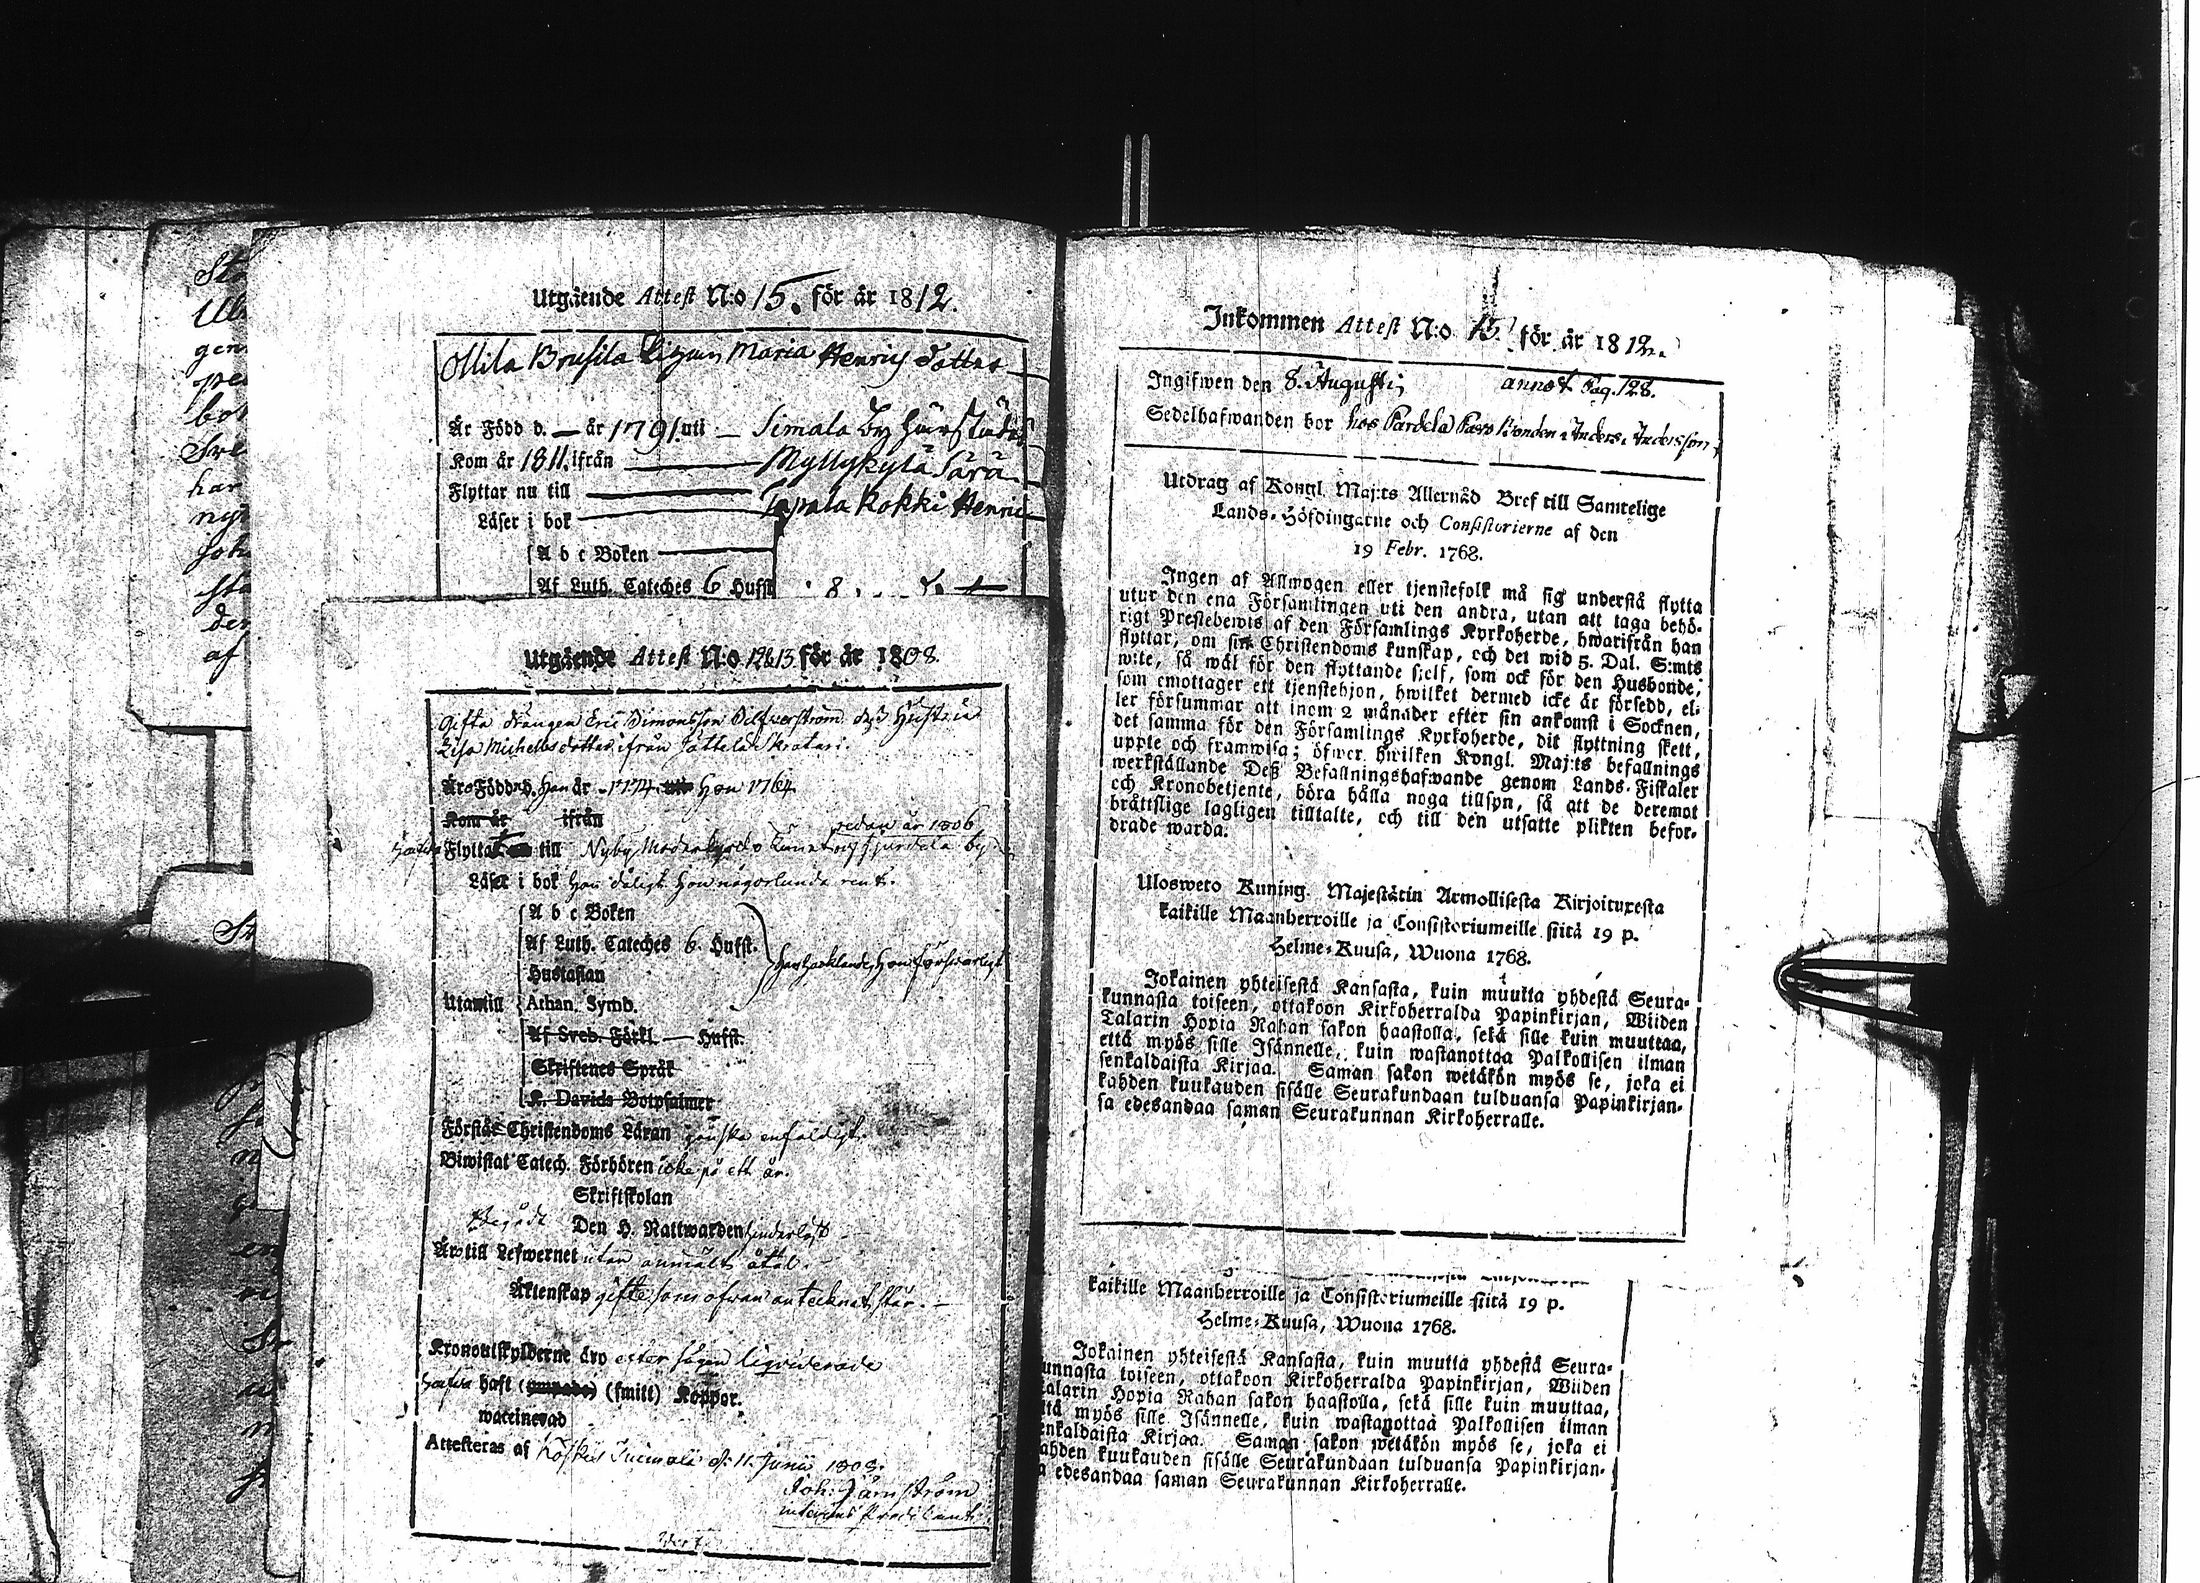 Utgående Attest N:o 15. för år 1812.
Ollila Brusila Maria Henrics dotter
Är Född d. — år 1791. uti — Simala By
Kom år 1811. ifrån — Myllykylä Särä
Flyttar nu till — Topala Kokki Henric
Läser i bok —
A b c Boken —
Af Luth. Cateches 6 Hufst.
Utgående Attest N:o 12&13 för år 1808.
Gifta drängen Eric Simonsson Silfwerström
Lisa Michelsdotter ifrån
Äro Född d. Han år 1774. uti Hon 1764
Kom år ifrån
sedan år 1806
Hafwa Flyttat till Nyby by
Läser i bok Han däligt. Hon någorlunda rent.
A b c Boken
Af Luth. Cateches 6. Hufst.
Hustaflan
Utantill Athan. Symb.
Af Sveb. Förkl. — Hufst.
Skriftenes Språk
K. Davids Botpsalmer
Förstår Christendoms Läran ganska enfaldigt.
Biwistat Catech. Förhören icke på ett år.
Skriftskolan
Begådt Den H. Nattwarden
Äro till Lefwernet utan anmält åtal.
Äktenskap gifte som ofwan antecknat står.
Kronoutskylderne äro efter sägen liqviderade
Hafwa haft (ympade) (smitt) Koppor.
waccinerad
Attesteras af d. 11. Junii 1808.
Joh:
Inkommen Attest N:o 15. för år 1812.
Ingifwen den 8. Augusti annot. Pag. 128.
Sedelhafwanden bor hos Bonden Anders Andersson
Utdrag af Kongl. Maj:ts Allernåd Bref till Samtelige
Lands-Höfdingarne och Consistorierne af den
19 Febr. 1768.
Ingen af Allmogen eller tjenstefolk må sig understå flytta
utur den ena Församlingen uti den andra, utan att taga behö-
rigt Prestebewis af den Församlings Kyrkoherde, hwarifrån han
flyttar, om sin Christendoms kunskap, och det wid 5. Dal. S:mts
wite, så wäl för den flyttande sielf, som ock för den Husbonde,
som emottager ett tjenstehjon, hwilket dermed icke är försedd, el-
ler försummar att inom 2 månader efter sin ankomst i Socknen,
det samma för den Församlings Kyrkoherde, dit flyttning skett,
uppte och framwisa; öfwer hwilken Kongl. Maj:ts befallnings
werkställande Deß Befallningshafwande genom Lands-Fiskaler
och Kronobetjente, böra hålla noga tillsyn, så att de deremot
bråttslige lagligen tilltalte, och till den utsatte plikten befor-
drade warda.
Ulosweto Kuning. Majestätin Armollisesta Kirjoituxesta
kaikille Maanherroille ja Consistoriumeille siitä 19 p.
Helme-Kuusa, Wuona 1768.
Jokainen yhteisestä Kansasta, kuin muutta yhdestä Seura-
kunnasta toiseen, ottakoon Kirkoherralda Papinkirjan, Wiiden
Talarin Hopia Rahan sakon haastolla, sekä sille kuin muuttaa,
että myös sille Isännelle, kuin wastanottaa Palkollisen ilman
senkaldaista Kirjaa. Saman sakon wetäkön myös se, joka ei
kahden kuukauden sisälle Seurakundaan tulduansa Papinkirjan-
sa edesandaa saman Seurakunnan Kirkoherralle.
kaikille Maanherroille ja Consistoriumeille siitä 19 p.
Helme-Kuusa, Wuona 1768.
Jokainen yhteisestä Kansasta, kuin muutta yhdestä Seura-
unnasta toiseen, ottakoon Kirkoherralda Papinkirjan, Wiiden
alarin Hopia Rahan sakon haastolla, sekä sille kuin muuttaa,
tä myös sille Isännelle, kuin wastanottaa Palkollisen ilman
enkaldaista Kirjaa. Saman sakon wetäkön myös se, joka ei
ahden kuukauden sisälle Seurakundaan tulduansa Papinkirjan-
a edesandaa saman Seurakunnan Kirkoherralle.